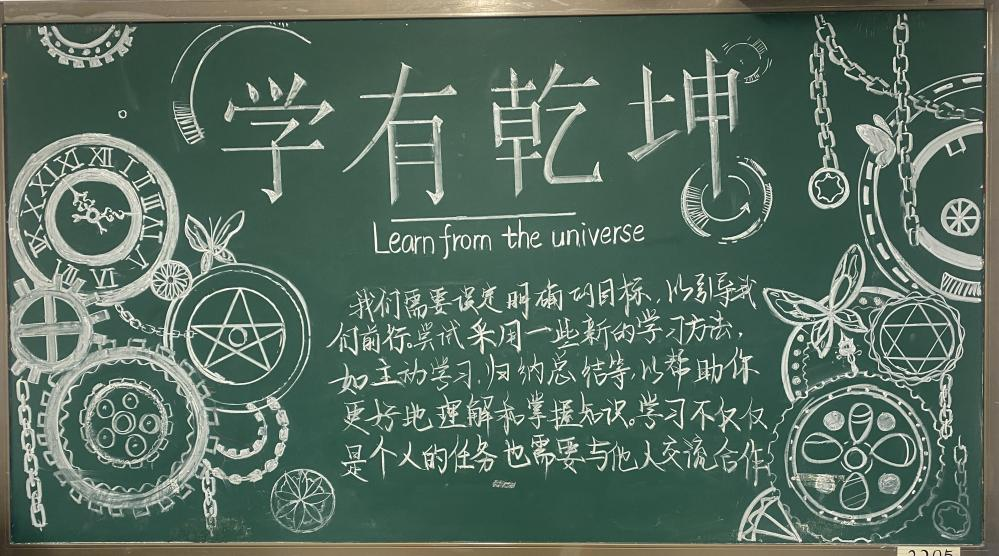 学有乾坤
Learn from the universe
我们需要设定明确的目标,以引导我
们前行。尝试采用一些新的学习方法,
如主动学习,归纳总结等,以帮助你
更好地理解和掌握知识。学习不仅仅
是个人的任务也需要与他人交流合作